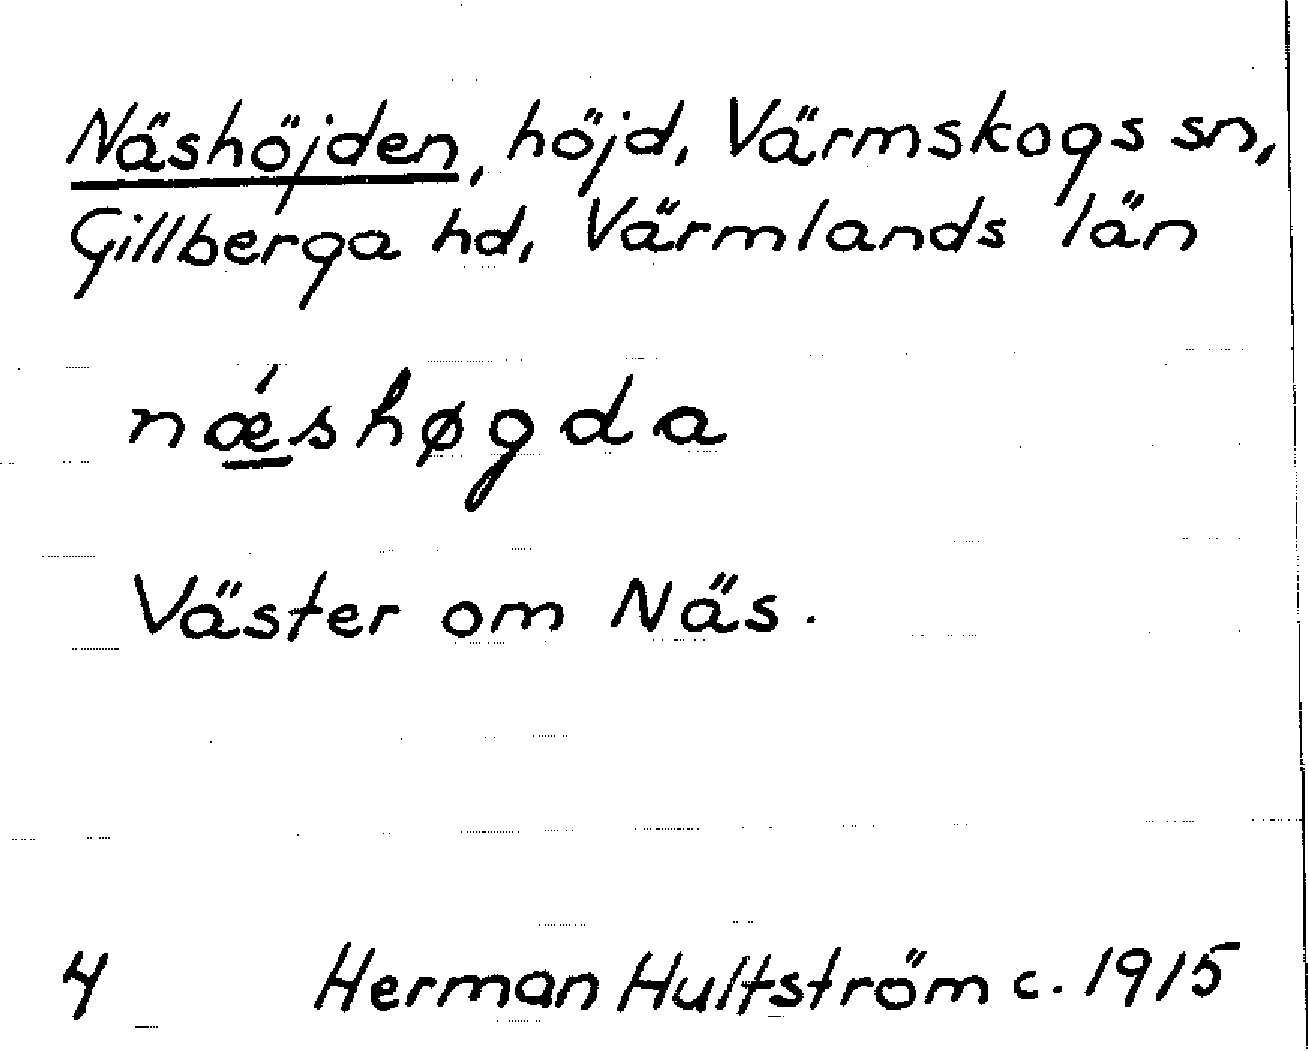 Näshöjden, höjd, Värmskogs sn,
Gillberga hd, Värmlands län
nǽshøgda
Väster om Näs.
4 Herman Hultström c. 1915